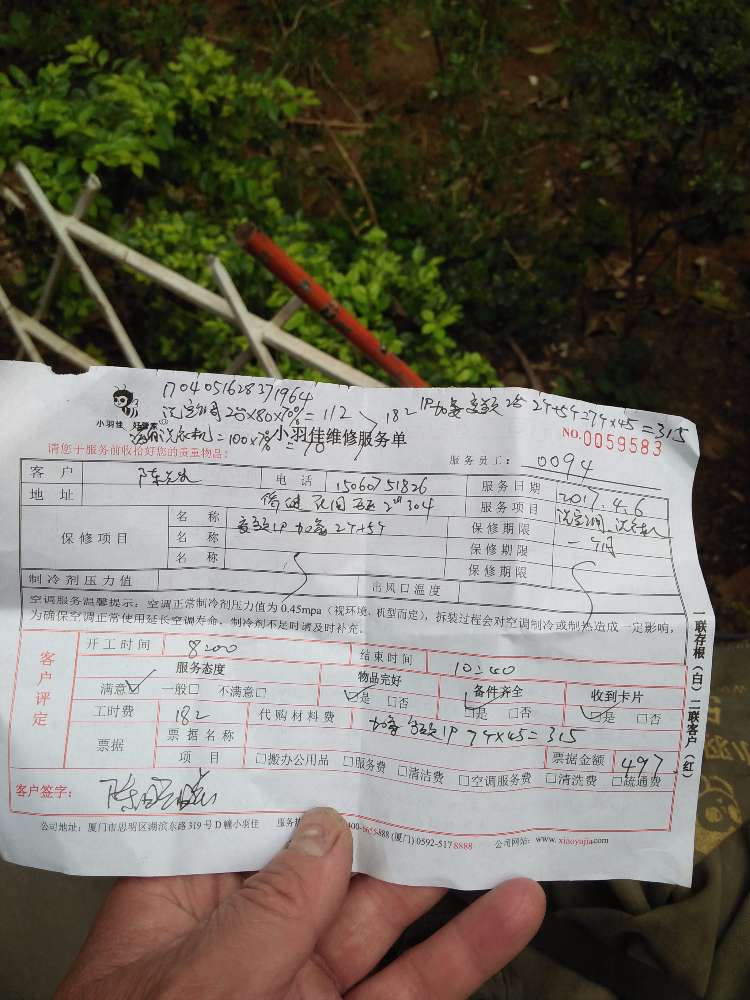 1704051628371964
182
= 112
= 315
小羽佳 好管家
小羽佳维修服务单
NO.0059583
请您于服务前收拾好您的贵重物品:
服务员工: 0094
客 户 电 话 15060751826 服务日期 2017.4.6
地 址 304 服务项目
保修项目 名 称 保修期限
名 称 保修期限
名 称 保修期限
制冷剂压力值 出风口温度
空调服务温馨提示: 空调正常制冷剂压力值为 0.45mpa (视环境、机型而定), 拆装过程会对空调制冷或制热造成一定影响,
为确保空调正常使用延长空调寿命, 制冷剂不足时请及时补充。
客户评定
开工时间 8:00 结束时间 10:40
服务态度 物品完好 备件齐全 收到卡片
满意☑ 一般□ 不满意□ ☑是 □否 ☑是 □否 ☑是 □否
工时费 182 代购材料费 1P 74×45=315
票据 票据名称 票据金额 497
项 目 □搬办公用品 □服务费 □清洁费 □空调服务费 □清洗费 □疏通费
客户签字:
一联存根(白)二联客户(红)
公司地址: 厦门市思明区湖滨东路 319 号 D 幢小羽佳 服务热 400-8655888 (厦门) 0592-5178888 公司网站: www.xiaoyujia.com